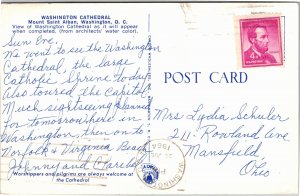 WASHINGTON CATHEDRAL
Mount Saint Alban, Washington, D. C.
View of Washington Cathedral as it will appear
when completed. (from architects' water color).
Sun Eve.
We went to see the Washington
Cathedral, the large
Catholic Shrine today.
Also toured the Capitol.
Much sightseeing planned
for tomorrow here in
Washington, then on to
Norfolk & Virginia Beach
Johnny and Clarabel
Worshippers and pilgrims are always welcome at
the Cathedral
POST CARD
Mrs Lydia Schuler
211- Rowland Ave
Mansfield,
Ohio
4¢
1961
WASHINGTON